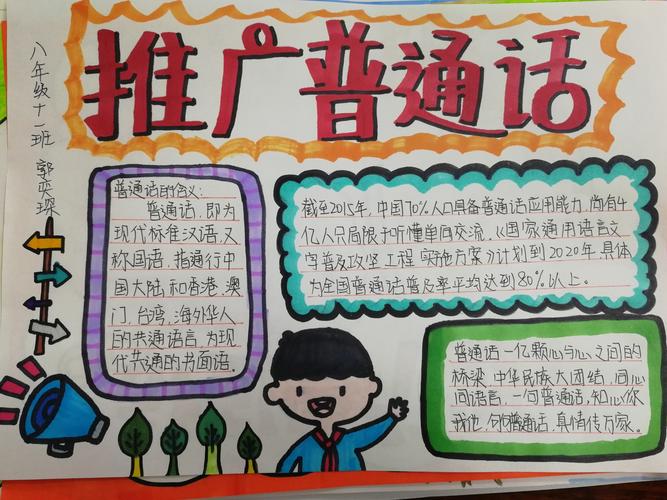 推广普通话
八年级十一班 郭奕琛
普通话的含义:
普通话，即为
现代标准汉语，又
称国语，指通行中
国大陆，和香港，澳
门，台湾，海外华人
的共通语言，为现
代共通的书面语。
截至2015年，中国70%人口具备普通话应用能力，尚有4
亿人只局限于听懂单向交流。《国家通用语言文
字普及攻坚工程实施方案》计划到2020年，具体
为全国普通话普及率平均达到80%以上。
普通话一亿颗心与心之间的
桥梁，中华民族大团结，同心
同语言，一句普通话，知心你
我他，句句普通话，真情传万家。